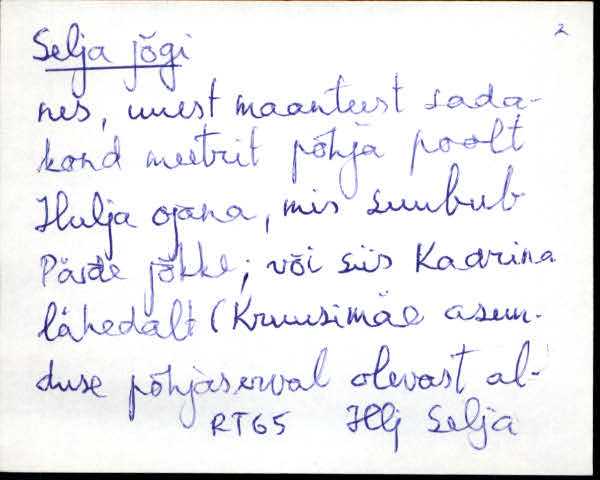 2
Selja jõgi
nes, uuest maanteest sada-
kond meetrit põhja poolt
Hulja ojana, mis suubub
Pärde jõkke; või siis Kadrina
lähedalt (Kruusimäe asun-
duse põhjaserval olevast al-
RT65 Hlj Selja